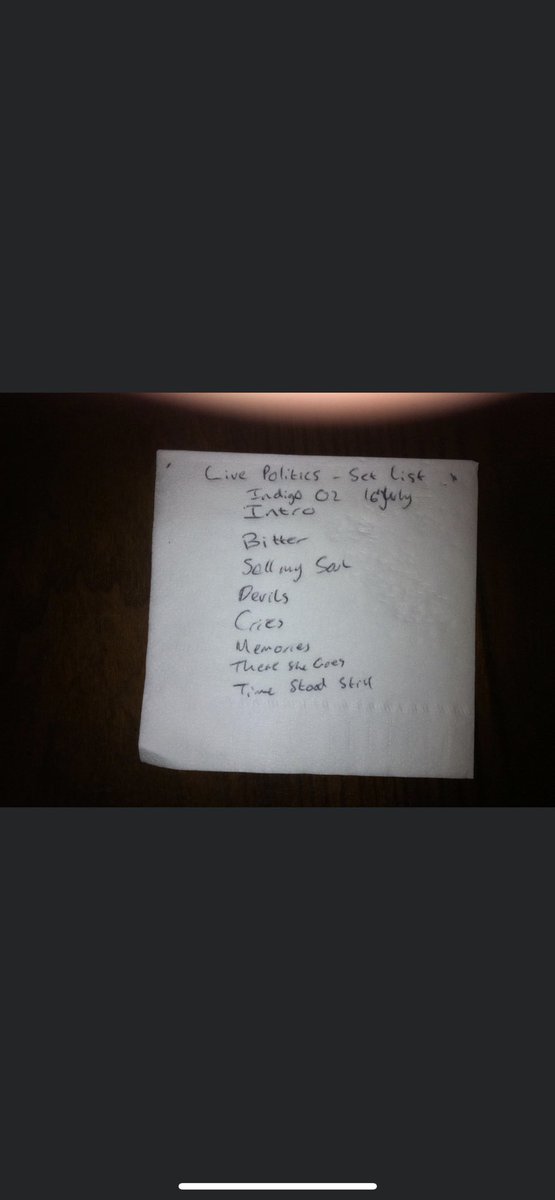 Live Politics - Set List
Indigo O2 16 July
Intro
Bitter
Sell my Soul
Devils
Cries
Memories
There she Goes
Time Stood Still